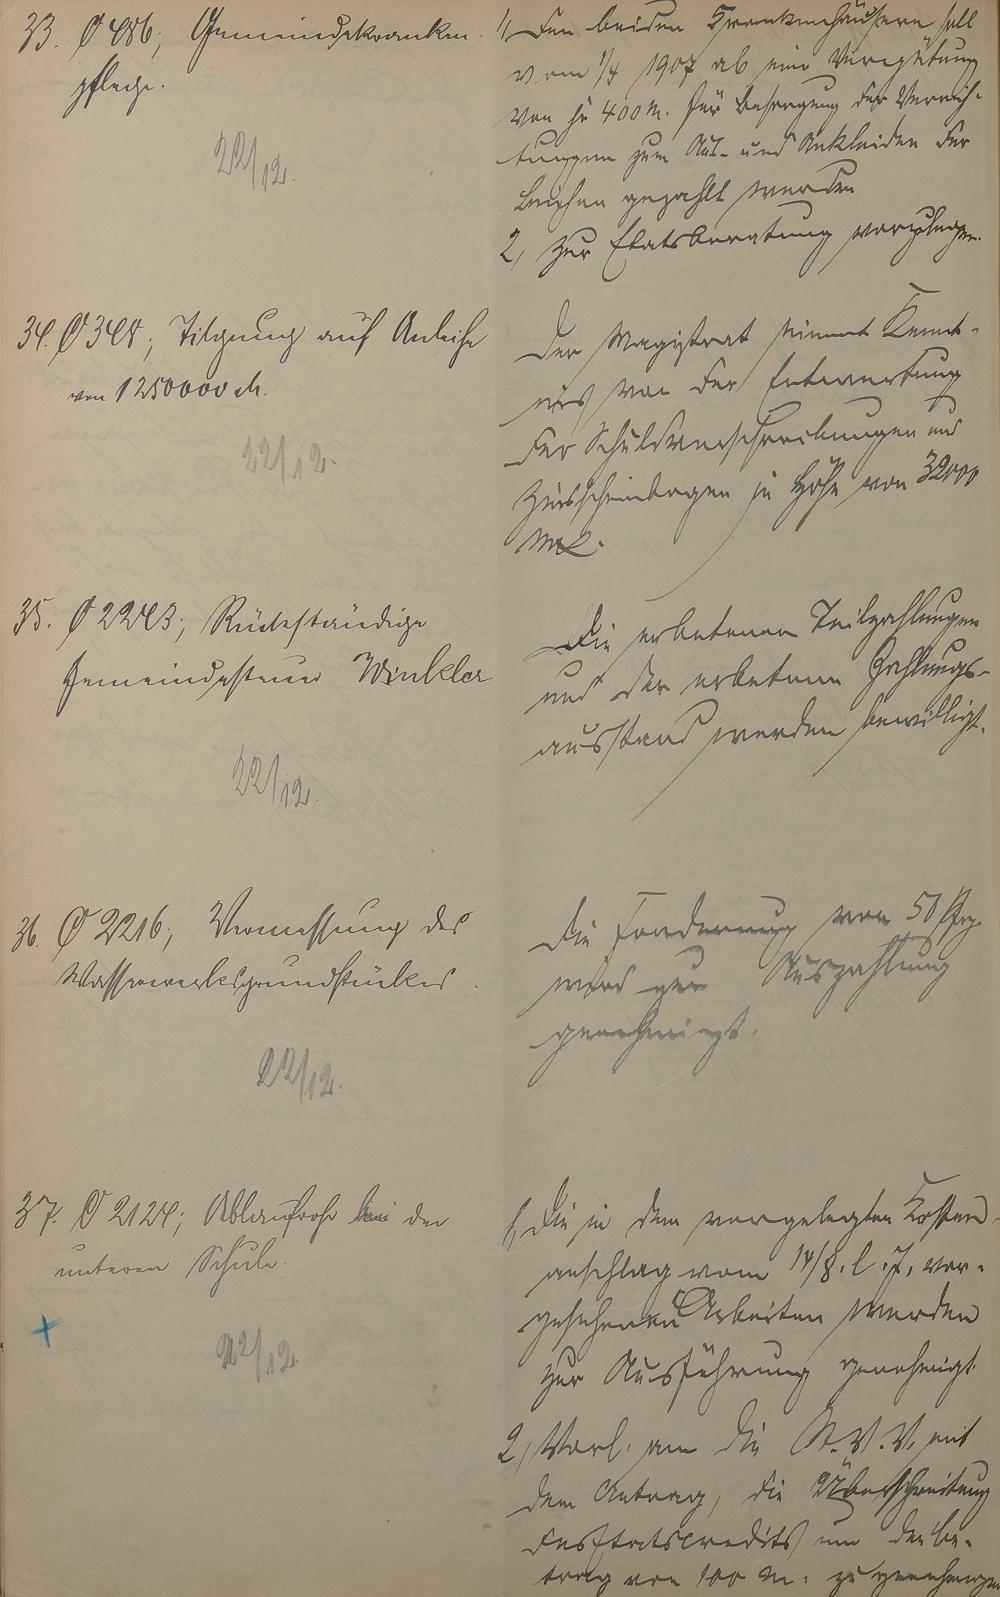 33. O 486; Gemeindekranken-
pflege.
22/12.
1, Den beiden Krankenhäusern soll
vom 1/4 1907 ab eine Vergütung
von je 400 M. für Besorgung der Verrich-
tungen zum Aus- und Ankleiden der
Leichen gezahlt werden
2, Zur Etatsberatung vorzulegen.
34. O 348; Tilgung auf Anleihe
von 1250000 M.
22/12.
Der Magistrat nimmt Kennt-
nis von der Entwertung
der Schuldverschreibungen und
Zinsscheinbogen in Höhe von 32000
Mk.
35. O 2243; Rückständige
Gemeindesteuer Winkler
22/12.
Die erbetenen Teilzahlungen
und der erbetene Zahlungs-
ausstand werden bewilligt.
36. O 2216; Vermessung des
Wasserwerksgrundstückes.
22/12.
Die Forderung von 50 Pfg.
wird zur Auszahlung
genehmigt.
37. O 2124; Ablaufrohr bei der
unteren Schule.
22/12.
1, Die in dem vorgelegten Kosten-
anschlag vom 14/8. l. J. vor-
gesehenen Arbeiten werden
zur Ausführung genehmigt
2, Vorl. an die St. V. V. mit
dem Antrag, die Überschreitung
des Etatscredits um den Be-
trag von 100 M. zu genehmigen